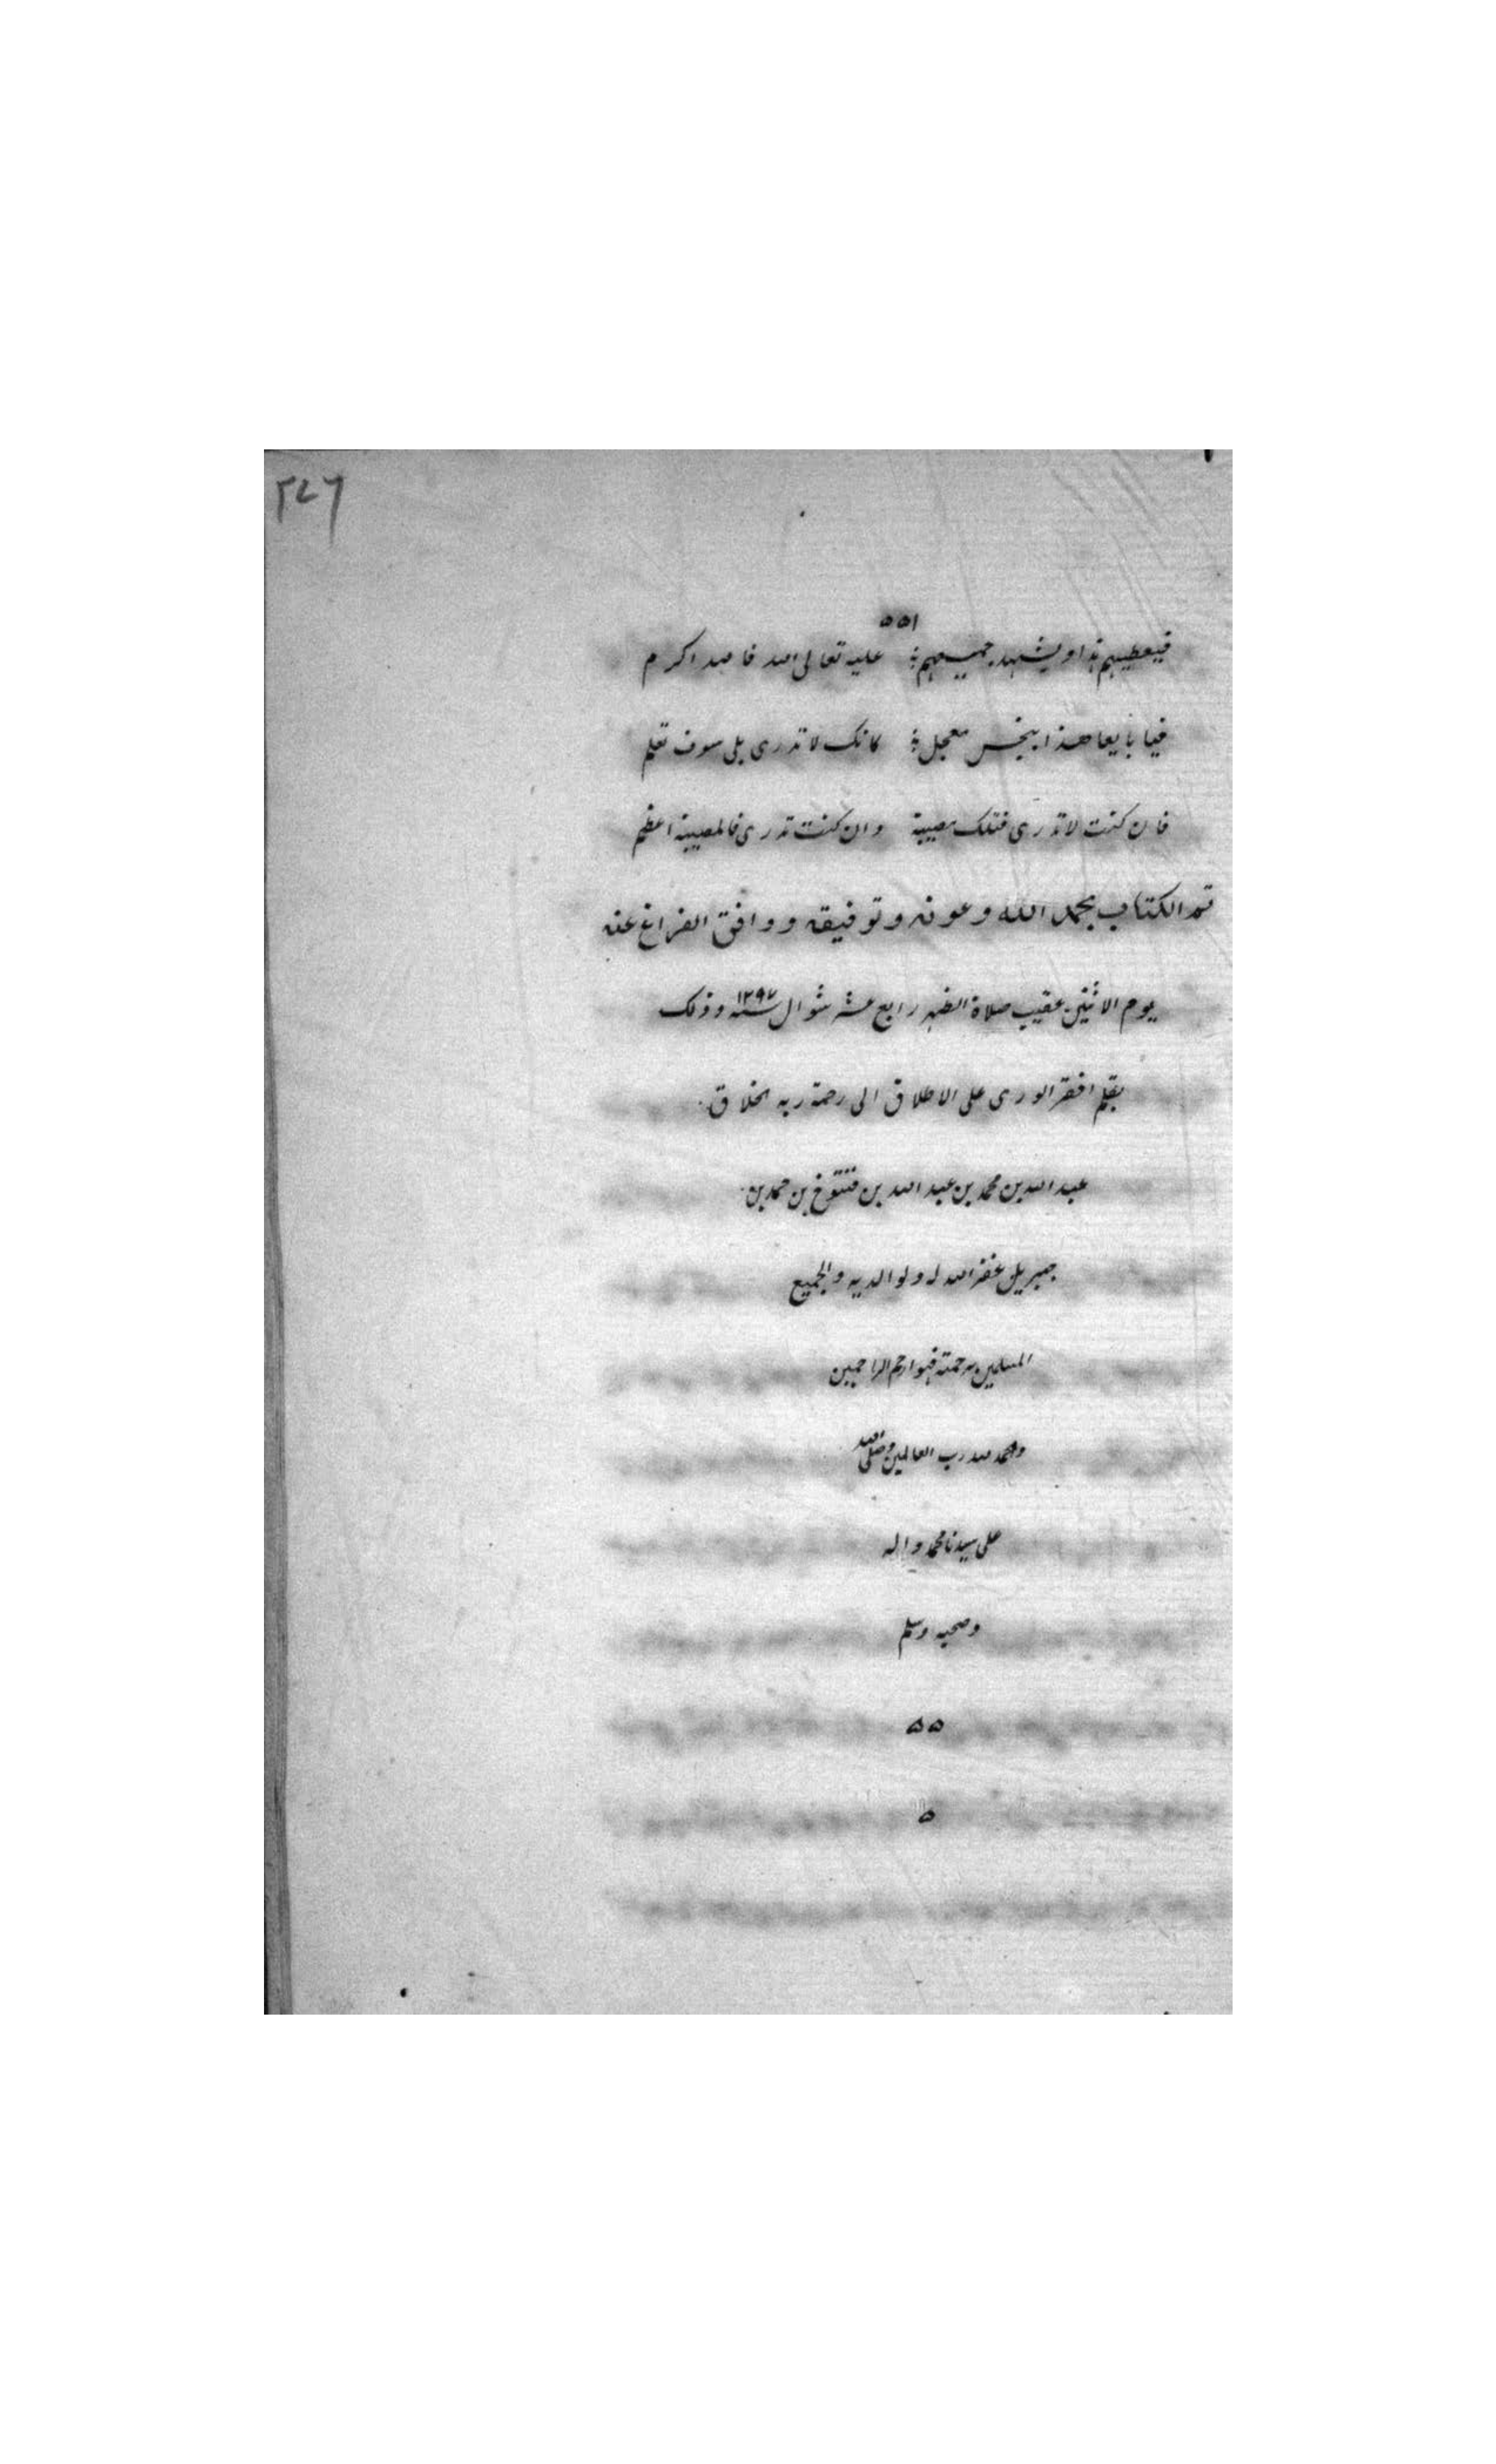 ٢٤٦
٥٥١
فيعطيهم هذا ويشهد جميعهم ؛ عليه تعالى الله فالله اكرم
فيا بايعا هذا ببخس معجل ؛ كانك لا تدرى بلى سوف تعلم
فان كنت لا تدرى فتلك مصيبة وان كنت تدرى فالمصيبة اعظم
تم الكتاب بحمد الله وعونه وتوفيقه ووافق الفراغ عنه
يوم الاثنين عقيب صلاة الظهر رابع عشر شوال سنه ١٢٩٧ وذلك
بقلم افقر الورى على الاطلاق الى رحمة ربه الخلاق
عبد الله بن محمد بن عبد الله بن فنتوخ بن حمد بن
جبريل غفر الله له ولوالديه والجميع
المسلمين برحمته فهو ارحم الراحمين
والحمد لله رب العالمين وصلى الله
على سيدنا محمد واله
وصحبه وسلم
ه ه
ه